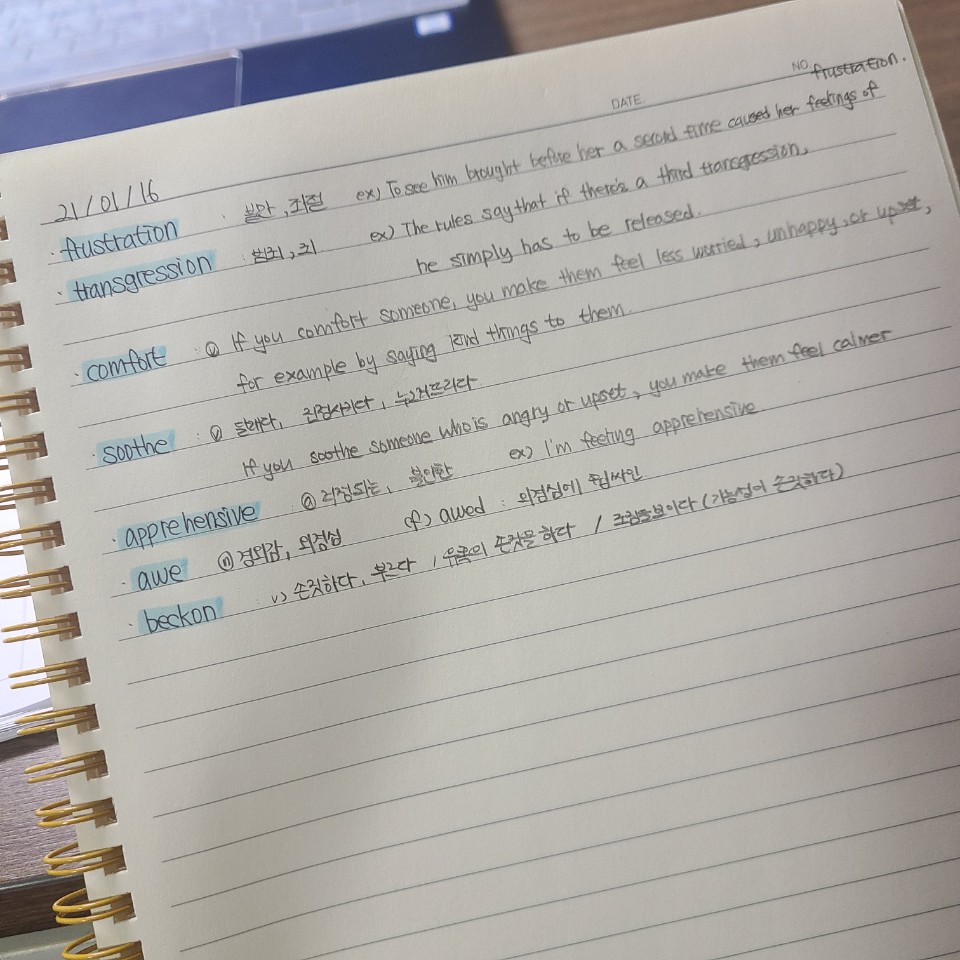 DATE. NO.
21/01/16
· frustration : 불만, 좌절 ex) To see him brought before her a second time caused her feelings of frustration.
· transgression : 범죄, 죄 ex) The rules say that if there's a third transgression,
he simply has to be released.
· comfort : ⓥ If you comfort someone, you make them feel less worried, unhappy, or upset,
for example by saying kind things to them.
· soothe : ⓥ 달래다, 진정시키다, 누그러뜨리다
If you soothe someone who is angry or upset, you make them feel calmer
· apprehensive ⓐ 걱정되는, 불안한 ex) I'm feeling apprehensive
· awe ⓝ 경외감, 외경심 cf) awed : 외경심에 휩싸인
· beckon : v) 손짓하다, 부르다 / 유혹의 손짓을 하다 / 조짐을 보이다 (가능성이 손짓하다)